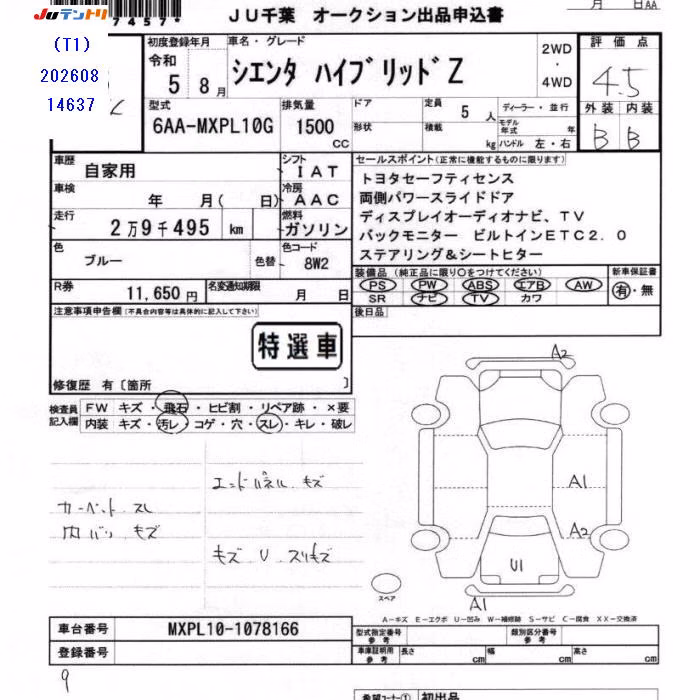 JUテントリ
7457*
JU千葉 オークション出品申込書
月 日AA
(T1)
202608
14637
初度登録年月
令和
5 8月
車名・グレード
シエンタ ハイブリッドZ
2WD
・
4WD
評価点
4.5
外装 内装
B B
型式
6AA-MXPL10G
排気量
1500
cc
ドア
形状
定員
5 人
積載
kg
ディーラー・並行
モデル年式 年
ハンドル 左・右
車歴
自家用
シフト
IAT
車検
年 月( 日)
冷房
AAC
走行
2万9千495 km
燃料
ガソリン
色
ブルー
色替
色コード
8W2
R券
11,650円
名変通知期限
月 日
セールスポイント(正常に機能するものに限ります)
トヨタセーフティセンス
両側パワースライドドア
ディスプレイオーディオナビ、TV
バックモニター ビルトインETC2.0
ステアリング&シートヒター
装備品 (純正品に限り○をつけてください)
PS PW ABS エアB AW
SR ナビ TV カワ
新車保証書
有・無
後日品
注意事項申告欄(不具合内容等は具体的に記入して下さい)
特選車
修復歴 有〔箇所 〕
検査員
記入欄
FW キズ・飛石・ヒビ割・リペア跡・×要
内装 キズ・汚レ・コゲ・穴・スレ・キレ・破レ
エンドパネル キズ
カーペット スレ
内バリ キズ
キズ U スリキズ
A2
A1
A2
U1
A1
スペア
A-キズ E-エクボ U-凹み W-補修跡 S-サビ C-腐食 XX-交換済
車台番号
MXPL10-1078166
登録番号
型式指定番号
参考
類別区分番号
参考
車庫証明用
参考
長さ cm
幅 cm
高さ cm
9
希望コーナー①
初出品